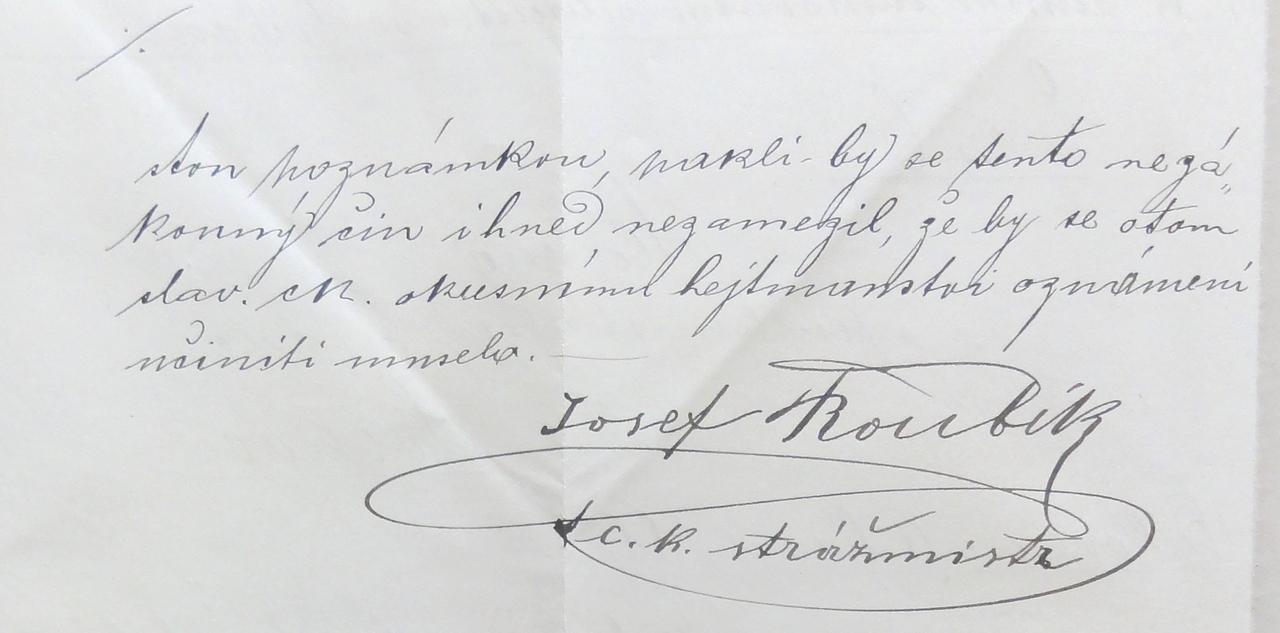 ./.
stou poznámkou, nakli-by se tento nezá„
konný čin ihned nezamezil, že by se otom
slav. ck. okresnímu hejtmanství oznámení
učiniti muselo. —
Josef Roubík
c. k. strážmistr